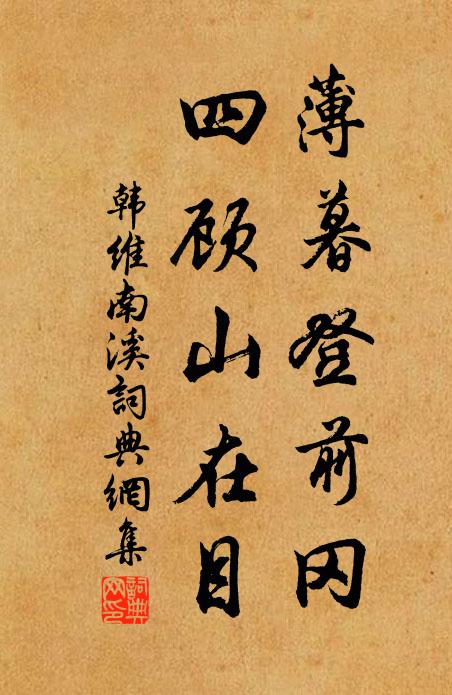 薄暮登前冈
四顾山在目
韩维南溪词典網集
詞典网印